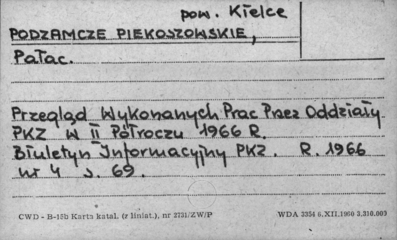 pow. Kielce
PODZAMCZE PIEKOSZOWSKIE,
Pałac.
Przegląd Wykonanych Prac Przez Oddziały
PKZ w II Półroczu 1966 R.
Biuletyn Informacyjny PKZ. R. 1966
nr 4 s. 69.
CWD - B-18b Karta katal. (z liniat.), nr 2731/ZW/P WDA 3354 6.XII.1960 2.310.000